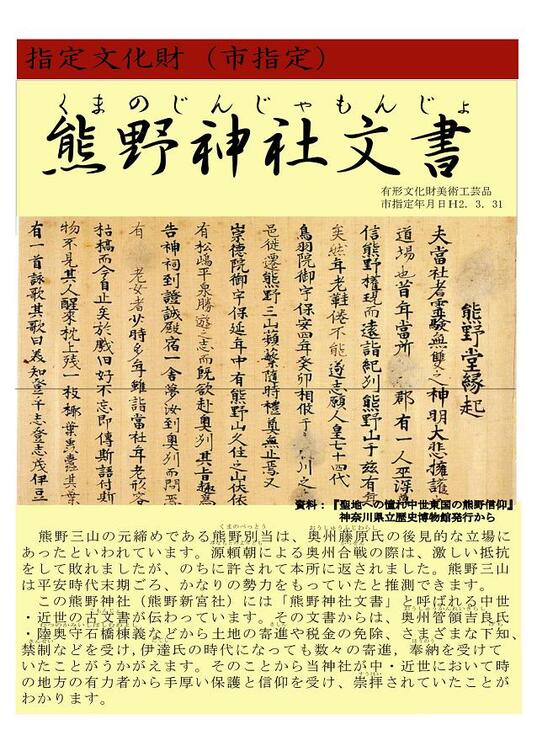 指定文化財（市指定）
くまのじんじゃもんじょ
熊野神社文書
有形文化財美術工芸品
市指定年月日H2. 3. 31
熊野堂縁起
夫當社者霊験無雙之神明大悲擁護
道場也昔年當所 郡有一人巫深尊
信熊野権現而遠詣紀列熊野山于茲有年
矣然年老鞋倦不能遂志願人皇七十四代
鳥羽院御宇保安四年癸卯相攸于 川之
邑徙遷熊野三山蘋蘩随時禮奠無止焉又
崇徳院御宇保延年中有熊野山久住之山伏依
有松嶋平泉勝遊之志而既欲赴奥列其旨趣
告神祠到證誠殿宿一舎夢汝到奥列而問焉
有 老女者少時多年雖詣當社年老形容
枯槁而今自止矣於戯旧好不忘即傳斯語付斯
物不見其人醒來枕上残一枝梛葉 其葉
有一首詠歌其歌曰
資料：『聖地への憧れ中世東国の熊野信仰』
神奈川県立歴史博物館発行から
熊野三山の元締めである熊野別当は、奥州藤原氏の後見的な立場に
あったといわれています。源頼朝による奥州合戦の際は、激しい抵抗
をして敗れましたが、のちに許されて本所に返されました。熊野三山
は平安時代末期ごろ、かなりの勢力をもっていたと推測できます。
この熊野神社（熊野新宮社）には「熊野神社文書」と呼ばれる中世
・近世の古文書が伝わっています。その文書からは、奥州管領吉良氏
・陸奥守石橋棟義などから土地の寄進や税金の免除、さまざまな下知、
禁制などを受け,伊達氏の時代になっても数々の寄進，奉納を受けて
いたことがうかがえます。そのことから当神社が中・近世において時
の地方の有力者から手厚い保護と信仰を受け、崇拝されていたことが
わかります。